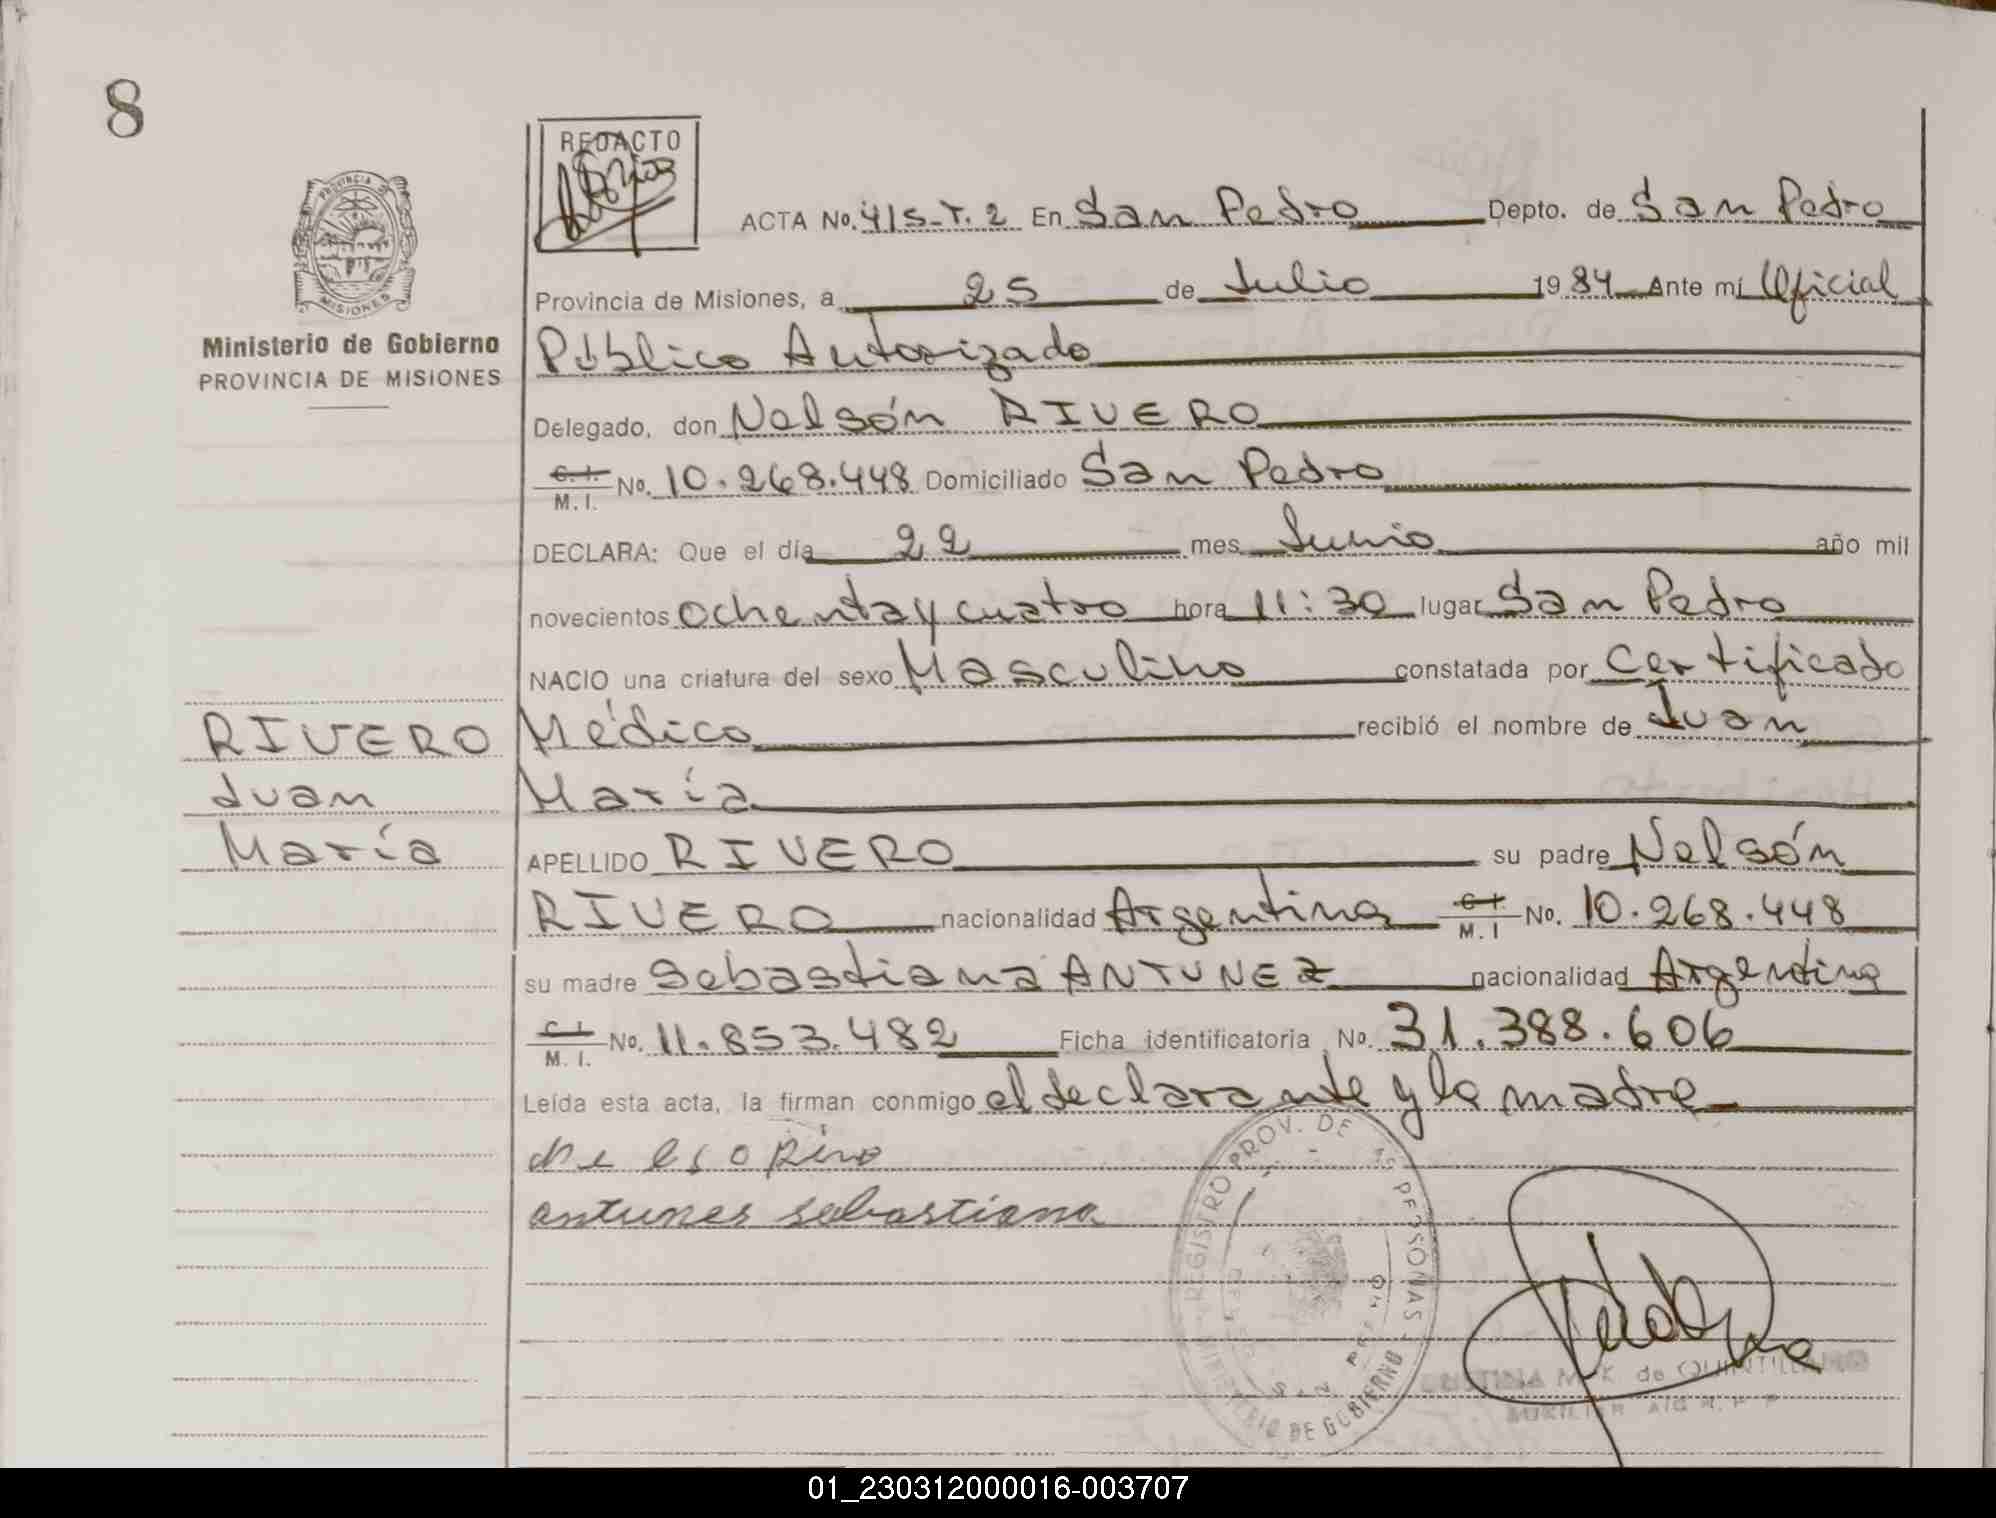 8
REDACTO
PROVINCIA DE
MISIONES
Ministerio de Gobierno
PROVINCIA DE MISIONES
ACTA No. 415-T.2 En San Pedro Depto. de San Pedro
Provincia de Misiones, a 25 de Julio 1984 Ante mí Oficial
Público Autorizado
Delegado, don Nelsón RIVERO
C.I. M.I. No. 10.268.448 Domiciliado San Pedro
DECLARA: Que el día 22 mes Junio año mil
novecientos ochenta y cuatro hora 11:30 lugar San Pedro
NACIO una criatura del sexo Masculino constatada por Certificado
Médico recibió el nombre de Juan
María
APELLIDO RIVERO su padre Nelsón
RIVERO nacionalidad Argentina C.I. M.I No. 10.268.448
su madre Sebastiana ANTUNEZ nacionalidad Argentina
C.I. M.I. No. 11.853.482 Ficha identificatoria No. 31.388.606
Leída esta acta, la firman conmigo el declarante y la madre
RIVERO
Juan
María
antunes sebastiana
REGISTRO PROV. DE AS PERSONAS
MINISTERIO DE GOBIERNO
SAN PEDRO
M. K. de
AUXILIAR
01_230312000016-003707